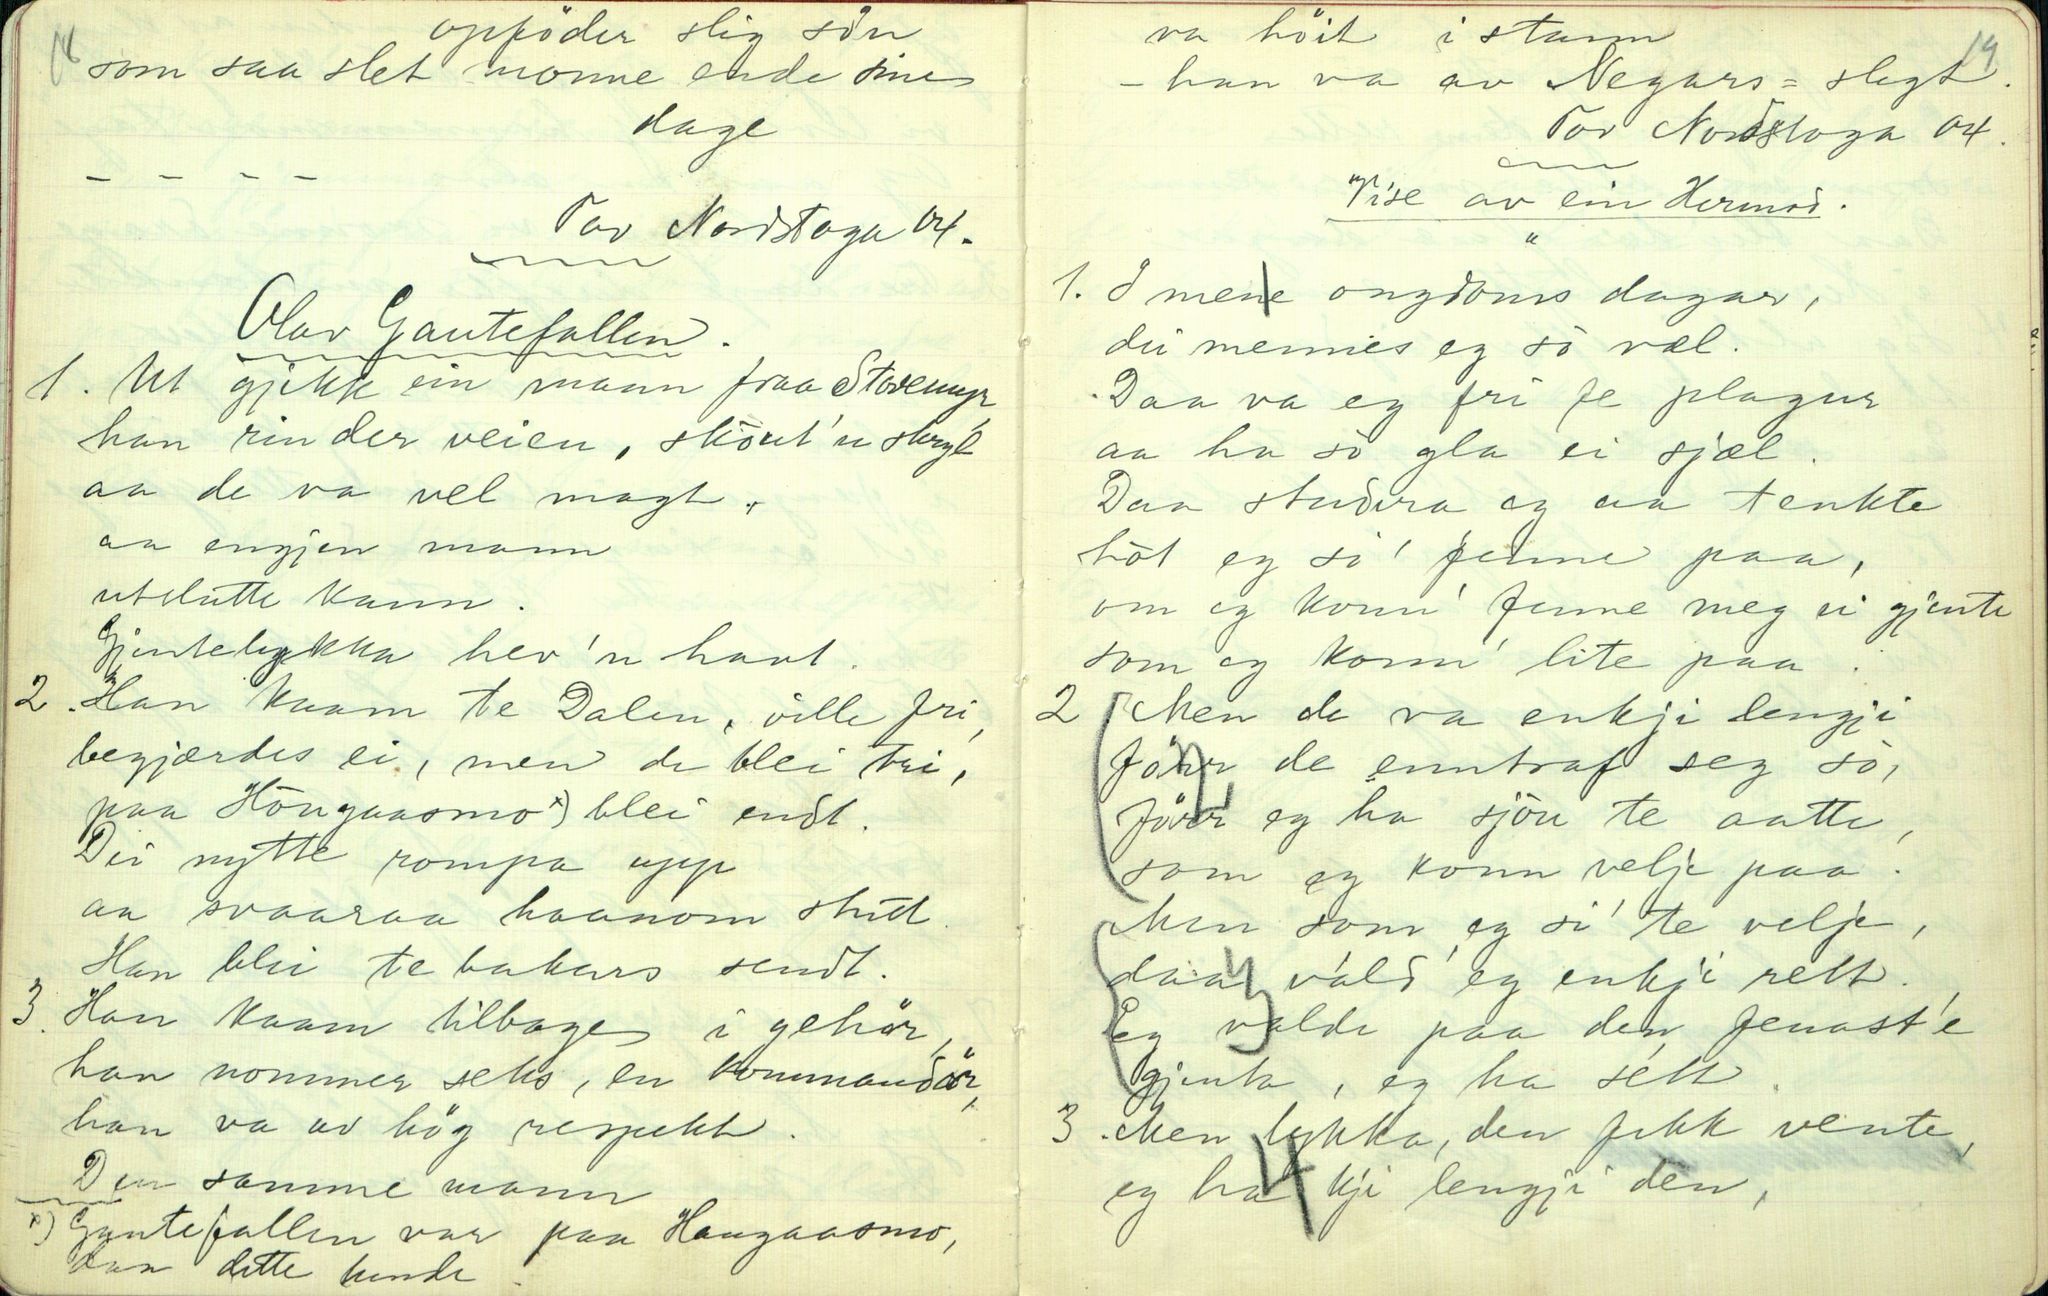 18
opföder slig sön
som saa slet monne ende sine
dage
- - - -
Tov Nordstoga 04.
Olav Gautefallen.
1. Ut gjekk ein mann fraa Storemyr,
han rin der veien, sköut'n stryk
aa de va vel magt,
aa engjen mann
utslutte kann.
Gjentelykka hev'n havt.
2. Han kaam te Dalen, ville fri,
begjærdes ei, men de blei tri,
paa Höugaasmo x) blei endt.
Dei nytte rompa upp
aa svaaraa haanom stutt.
Han blei tebakars sendt.
3. Han kaam tilbage i gehör,
han nommer seks, en kommandör,
han va av hög respekt.
Den samme mann
x) Gautefallen var paa Haugaasmo,
daa dette hende.
19
va höit i stann
- han va av Negars= slegt.
Tov Nordstoga 04.
Vise av ein Hermod.
"
1. I mene ongdoms dagar,
dei mennes eg so væl.
Daa va eg fri fe plagur
aa ha so gla ei sjæl.
Daa studera eg aa tenkte
hot eg sö' finne paa,
om eg konn' finne meg ei gjente
som eg konn' lite paa.
2 Men de va enkji lengji
förr de enntraf seg so,
förr eg ha sjöu te aatte,
som eg konn velje paa.
Men som eg si' te velje,
daa vald' eg enkji rett.
Eg valde paa den fenast'e
gjenta, eg ha sétt.
3. Men lykka, den fekk vente,
eg ha kji lengji den,
2
3
4